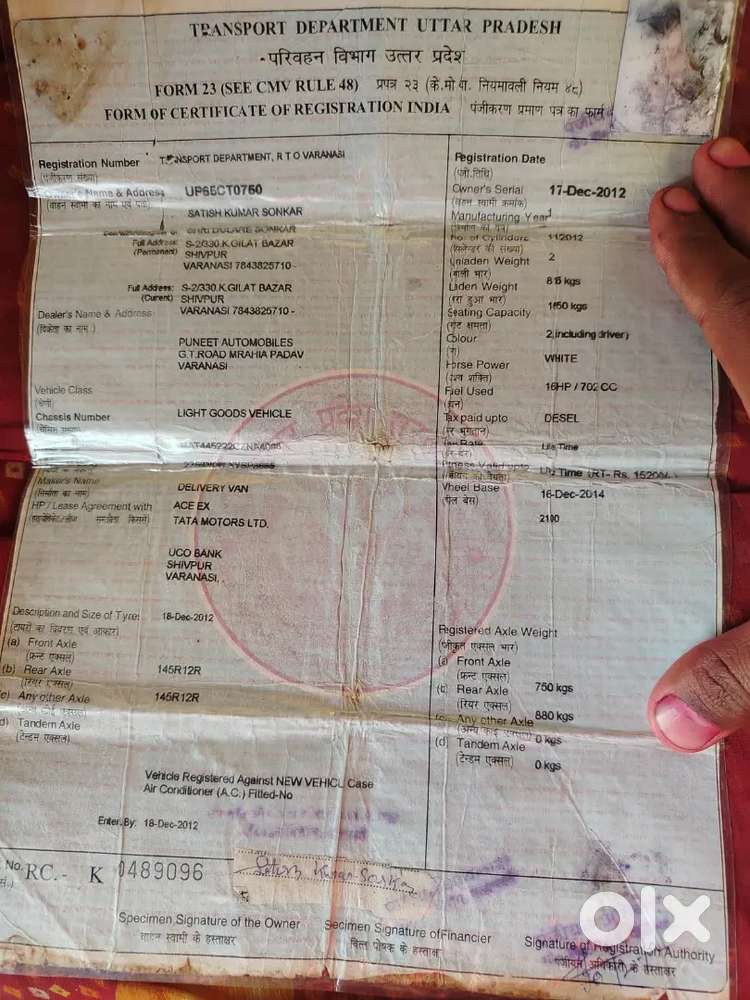 TRANSPORT DEPARTMENT UTTAR PRADESH
परिवहन विभाग उत्तर प्रदेश
FORM 23 (SEE CMV RULE 48) प्रपत्र २३ (के.मो.या. नियमावली नियम ४८)
FORM OF CERTIFICATE OF REGISTRATION INDIA पंजीकरण प्रमाण पत्र का फार्म
Registration Number
(पंजीकरण संख्या)
TRANSPORT DEPARTMENT, R T O VARANASI
Owner's Name & Address
(वाहन स्वामी का नाम एवं पता)
UP65CT0750
SATISH KUMAR SONKAR
DULARE SONKAR
Full Address:
(Permanent)
S-2/330.K.GILAT BAZAR
SHIVPUR
VARANASI 7843825710 -
Full Address:
(Current)
S-2/330.K.GILAT BAZAR
SHIVPUR
VARANASI 7843825710 -
Dealer's Name & Address
(विक्रेता का नाम.)
PUNEET AUTOMOBILES
G.T.ROAD MRAHIA PADAV
VARANASI
Vehicle Class
(श्रेणी)
LIGHT GOODS VEHICLE
Chassis Number
Maker's Name
(निर्माता का नाम)
DELIVERY VAN
HP / Lease Agreement with
ACE EX
TATA MOTORS LTD.
UCO BANK
SHIVPUR
VARANASI,
Registration Date
(पं.तिथि)
Owner's Serial
(वाहन स्वामी क्रमांक)
17-Dec-2012
Manufacturing Year
1
No. of Cylinders
(सिलेन्डर की संख्या)
112012
Unladen Weight
(खाली भार)
2
Laden Weight
(भरा हुआ भार)
kgs
Seating Capacity
kgs
Colour
2,(including driver)
Horse Power
(अश्व शक्ति)
WHITE
Fuel Used
16HP / 702 CC
Tax paid upto
(कर भुगतान)
DESEL
Tax Rate
(कर-दर)
Life Time
Fitness Valid upto
Life Time (RT- Rs.
Wheel Base
(व्हील बेस)
16-Dec-2014
2100
Description and Size of Tyre:
(टायरों का विवरण एवं आकार)
18-Dec-2012
(a) Front Axle
(फ्रन्ट एक्सल)
(b) Rear Axle
(रियर एक्सल)
145R12R
(c) Any other Axle
145R12R
(d) Tandem Axle
(टेन्डम एक्सल)
Registered Axle Weight
(पंजीकृत एक्सल भार)
(a) Front Axle
(फ्रन्ट एक्सल)
(b) Rear Axle
(रियर एक्सल)
750 kgs
(c) Any other Axle
880 kgs
(d) Tandem Axle
(टेन्डम एक्सल)
0 kgs
0 kgs
Vehicle Registered Against NEW VEHICL Case
Air Conditioner (A.C.) Fitted-No
Enter.By: 18-Dec-2012
No. RC.- K 0489096
Specimen Signature of the Owner
वाहन स्वामी के हस्ताक्षर
Secimen Signature of Financier
वित्त पोषक के हस्ताक्ष
Signature of Registration Authority
पंजीयन अधिकारी के हस्ताक्षर
olx